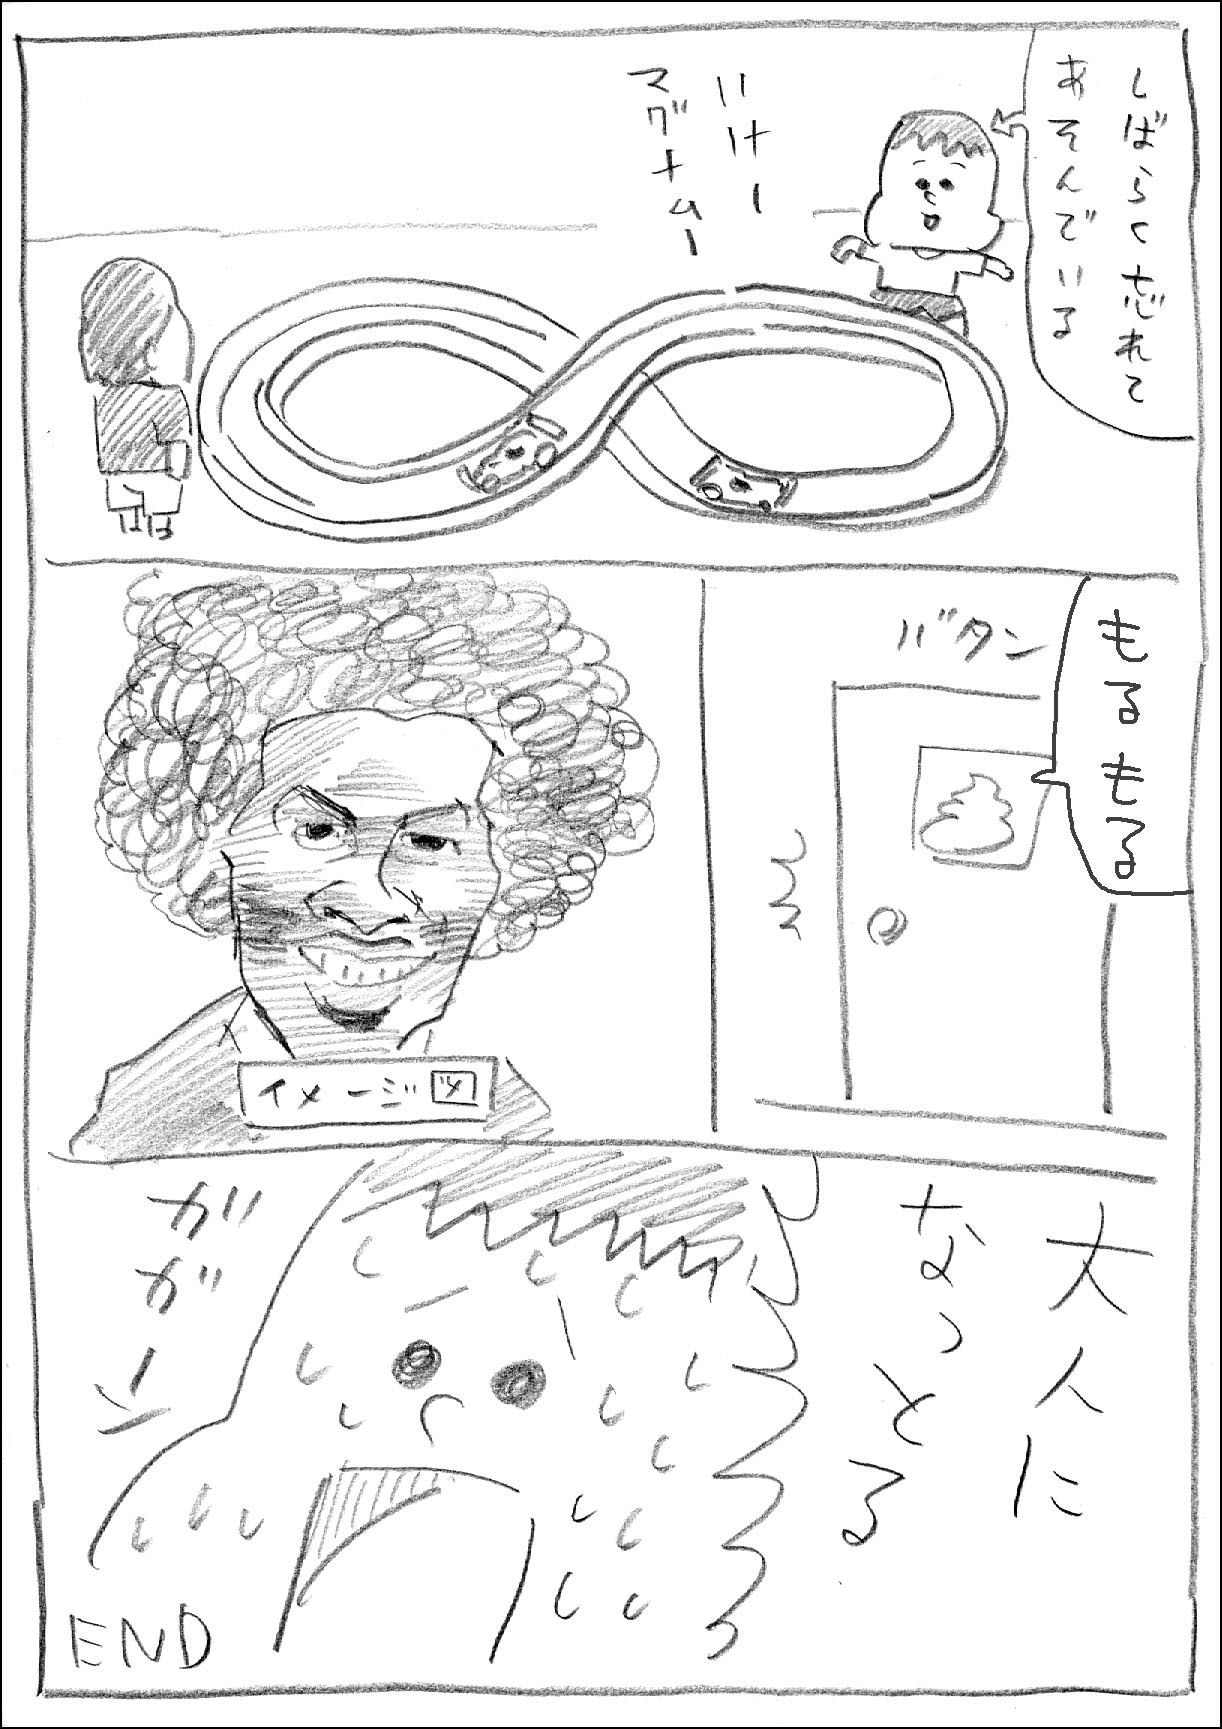 しばらく忘れて
あそんでいる
いけー
マグナムー
もるもる
バタン
イメージ図
大人に
なっとる
ガガーン
END